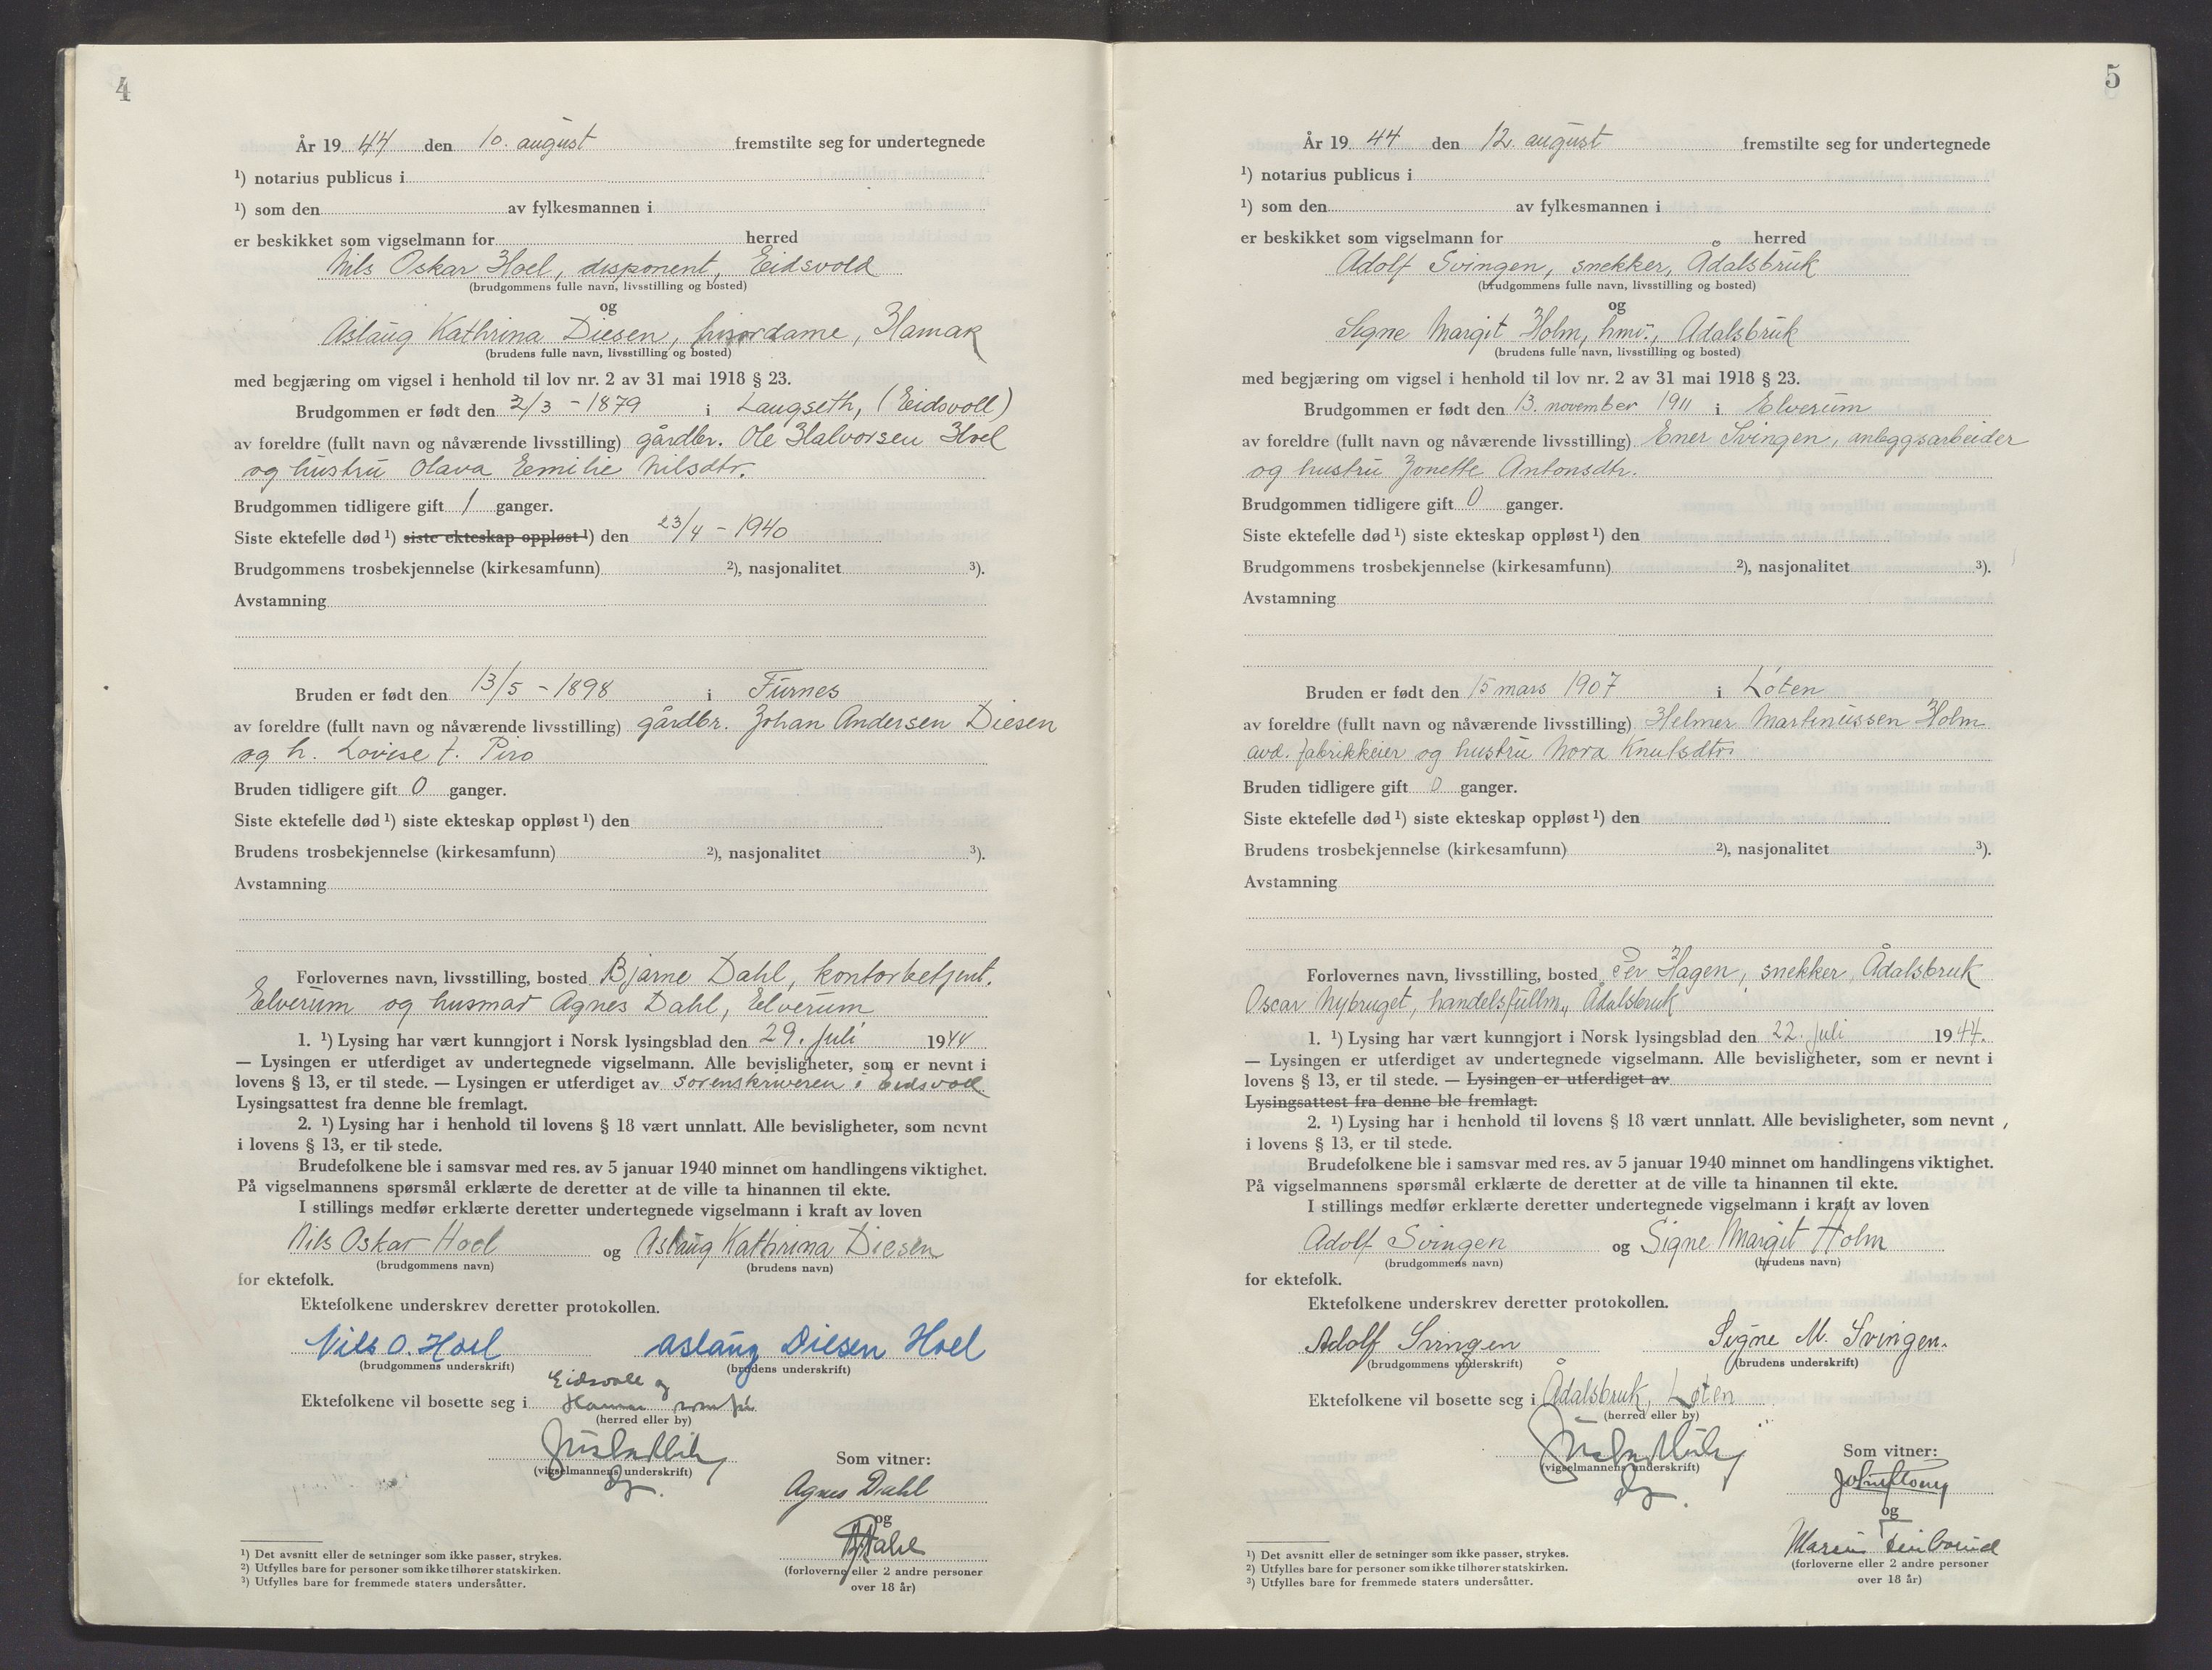 4
År 1944 den 10. august fremstilte seg for undertegnede
¹) notarius publicus i
¹) som den av fylkesmannen i
er beskikket som vigselmann for herred
Nils Oskar Hoel, disponent, Eidsvold
(brudgommens fulle navn, livsstilling og bosted)
og
Aslaug Kathrina Diesen, frisørdame, Hamar
(brudens fulle navn, livsstilling og bosted)
med begjæring om vigsel i henhold til lov nr. 2 av 31 mai 1918 § 23.
Brudgommen er født den 2/3 - 1879 i Langseth, (Eidsvoll)
av foreldre (fullt navn og nåværende livsstilling) gårdbr. Ole Halvorsen Hoel
og hustru Olava Emilie Nilsdtr.
Brudgommen tidligere gift 1 ganger.
Siste ektefelle død ¹) siste ekteskap oppløst ¹) den 23/4 - 1940
Brudgommens trosbekjennelse (kirkesamfunn) ²), nasjonalitet ³).
Avstamning
Bruden er født den 13/5 - 1898 i Furnes
av foreldre (fullt navn og nåværende livsstilling) gårdbr. Johan Andersen Diesen
og h. Lovise f. Piro
Bruden tidligere gift 0 ganger.
Siste ektefelle død ¹) siste ekteskap oppløst ¹) den
Brudens trosbekjennelse (kirkesamfunn) ²), nasjonalitet ³).
Avstamning
Forlovernes navn, livsstilling, bosted Bjarne Dahl, kontorbetjent.
Elverum og husmor Agnes Dahl, Elverum
1. ¹) Lysing har vært kunngjort i Norsk lysingsblad den 29. juli 1944
— Lysingen er utferdiget av undertegnede vigselmann. Alle bevisligheter, som er nevnt i
lovens § 13, er til stede. — Lysingen er utferdiget av sorenskriveren i Eidsvoll
Lysingsattest fra denne ble fremlagt.
2. ¹) Lysing har i henhold til lovens § 18 vært unnlatt. Alle bevisligheter, som nevnt
i lovens § 13, er til stede.
Brudefolkene ble i samsvar med res. av 5 januar 1940 minnet om handlingens viktighet.
På vigselmannens spørsmål erklærte de deretter at de ville ta hinannen til ekte.
I stillings medfør erklærte deretter undertegnede vigselmann i kraft av loven
Nils Oskar Hoel og Aslaug Kathrina Diesen
(brudgommens navn) (brudens navn)
for ektefolk.
Ektefolkene underskrev deretter protokollen.
Nils O. Hoel Aslaug Diesen Hoel
(brudgommens underskrift) (brudens underskrift)
Eidsvoll og
Ektefolkene vil bosette seg i Hamar
(herred eller by)
(vigselmannens underskrift)
Som vitner:
Agnes Dahl
og
Dahl
(forloverne eller 2 andre personer
over 18 år)
¹) Det avsnitt eller de setninger som ikke passer, strykes.
²) Utfylles bare for personer som ikke tilhører statskirken.
³) Utfylles bare for fremmede staters undersåtter.
5
År 1944 den 12. august fremstilte seg for undertegnede
¹) notarius publicus i
¹) som den av fylkesmannen i
er beskikket som vigselmann for herred
Adolf Svingen, snekker, Ådalsbruk
(brudgommens fulle navn, livsstilling og bosted)
og
Signe Margit Holm, hmv., Ådalsbruk
(brudens fulle navn, livsstilling og bosted)
med begjæring om vigsel i henhold til lov nr. 2 av 31 mai 1918 § 23.
Brudgommen er født den 13. november 1911 i Elverum
av foreldre (fullt navn og nåværende livsstilling) Ener Svingen, anleggsarbeider
og hustru Jonette Antonsdtr.
Brudgommen tidligere gift 0 ganger.
Siste ektefelle død ¹) siste ekteskap oppløst ¹) den
Brudgommens trosbekjennelse (kirkesamfunn) ²), nasjonalitet ³).
Avstamning
Bruden er født den 15 mars 1907 i Løten
av foreldre (fullt navn og nåværende livsstilling) Helmer Martinussen Holm
avd. fabrikkeier og hustru Nora Knutsdtr.
Bruden tidligere gift 0 ganger.
Siste ektefelle død ¹) siste ekteskap oppløst ¹) den
Brudens trosbekjennelse (kirkesamfunn) ²), nasjonalitet ³).
Avstamning
Forlovernes navn, livsstilling, bosted Per Hagen, snekker, Ådalsbruk
Oscar Nybruget, handelsfullm., Ådalsbruk
1. ¹) Lysing har vært kunngjort i Norsk lysingsblad den 22. juli 1944.
— Lysingen er utferdiget av undertegnede vigselmann. Alle bevisligheter, som er nevnt i
lovens § 13, er til stede. — Lysingen er utferdiget av
Lysingsattest fra denne ble fremlagt.
2. ¹) Lysing har i henhold til lovens § 18 vært unnlatt. Alle bevisligheter, som nevnt
i lovens § 13, er til stede.
Brudefolkene ble i samsvar med res. av 5 januar 1940 minnet om handlingens viktighet.
På vigselmannens spørsmål erklærte de deretter at de ville ta hinannen til ekte.
I stillings medfør erklærte deretter undertegnede vigselmann i kraft av loven
Adolf Svingen og Signe Margit Holm
(brudgommens navn) (brudens navn)
for ektefolk.
Ektefolkene underskrev deretter protokollen.
Adolf Svingen Signe M. Svingen.
(brudgommens underskrift) (brudens underskrift)
Ektefolkene vil bosette seg i Ådalsbruk, Løten
(herred eller by)
(vigselmannens underskrift)
Som vitner:
og
(forloverne eller 2 andre personer
over 18 år)
¹) Det avsnitt eller de setninger som ikke passer, strykes.
²) Utfylles bare for personer som ikke tilhører statskirken.
³) Utfylles bare for fremmede staters undersåtter.